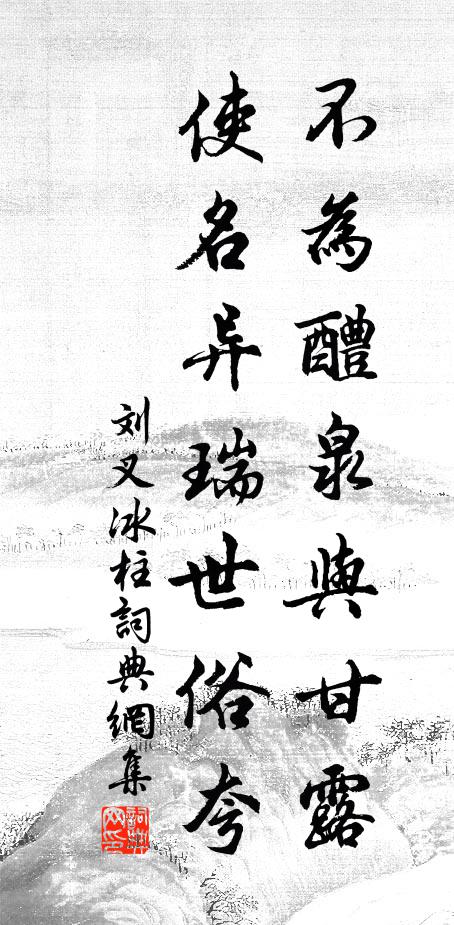 不為醴泉與甘露
使名异瑞世俗夸
刘叉冰柱詞典網集